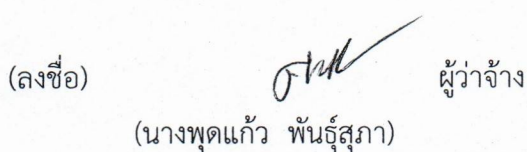 (ลงชื่อ) ผู้ว่าจ้าง
(นางพุดแก้ว พันธุ์สุภา)